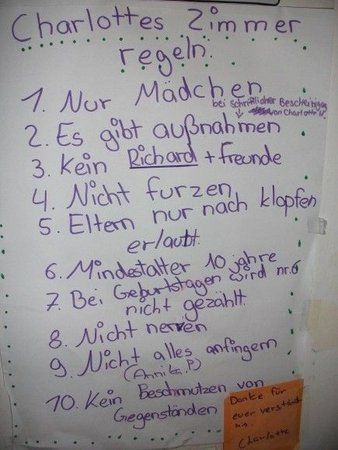 Charlottes Zimmer
regeln.
1. Nur Mädchen
bei Schriftlicher
von Charlotte
2. Es gibt außnahmen
3. Kein Richard + freunde
4. Nicht furzen
5. Eltern nur nach klopfen
erlaubt.
6. Mindestalter 10 jahre
7. Bei Geburtstagen wird nr.6
nicht gezählt.
8. Nicht nerven
9. Nicht alles anfingern
(Annika.P)
10. Kein Beschmutzen von
Gegenständen
Danke für
euer
Charlotte